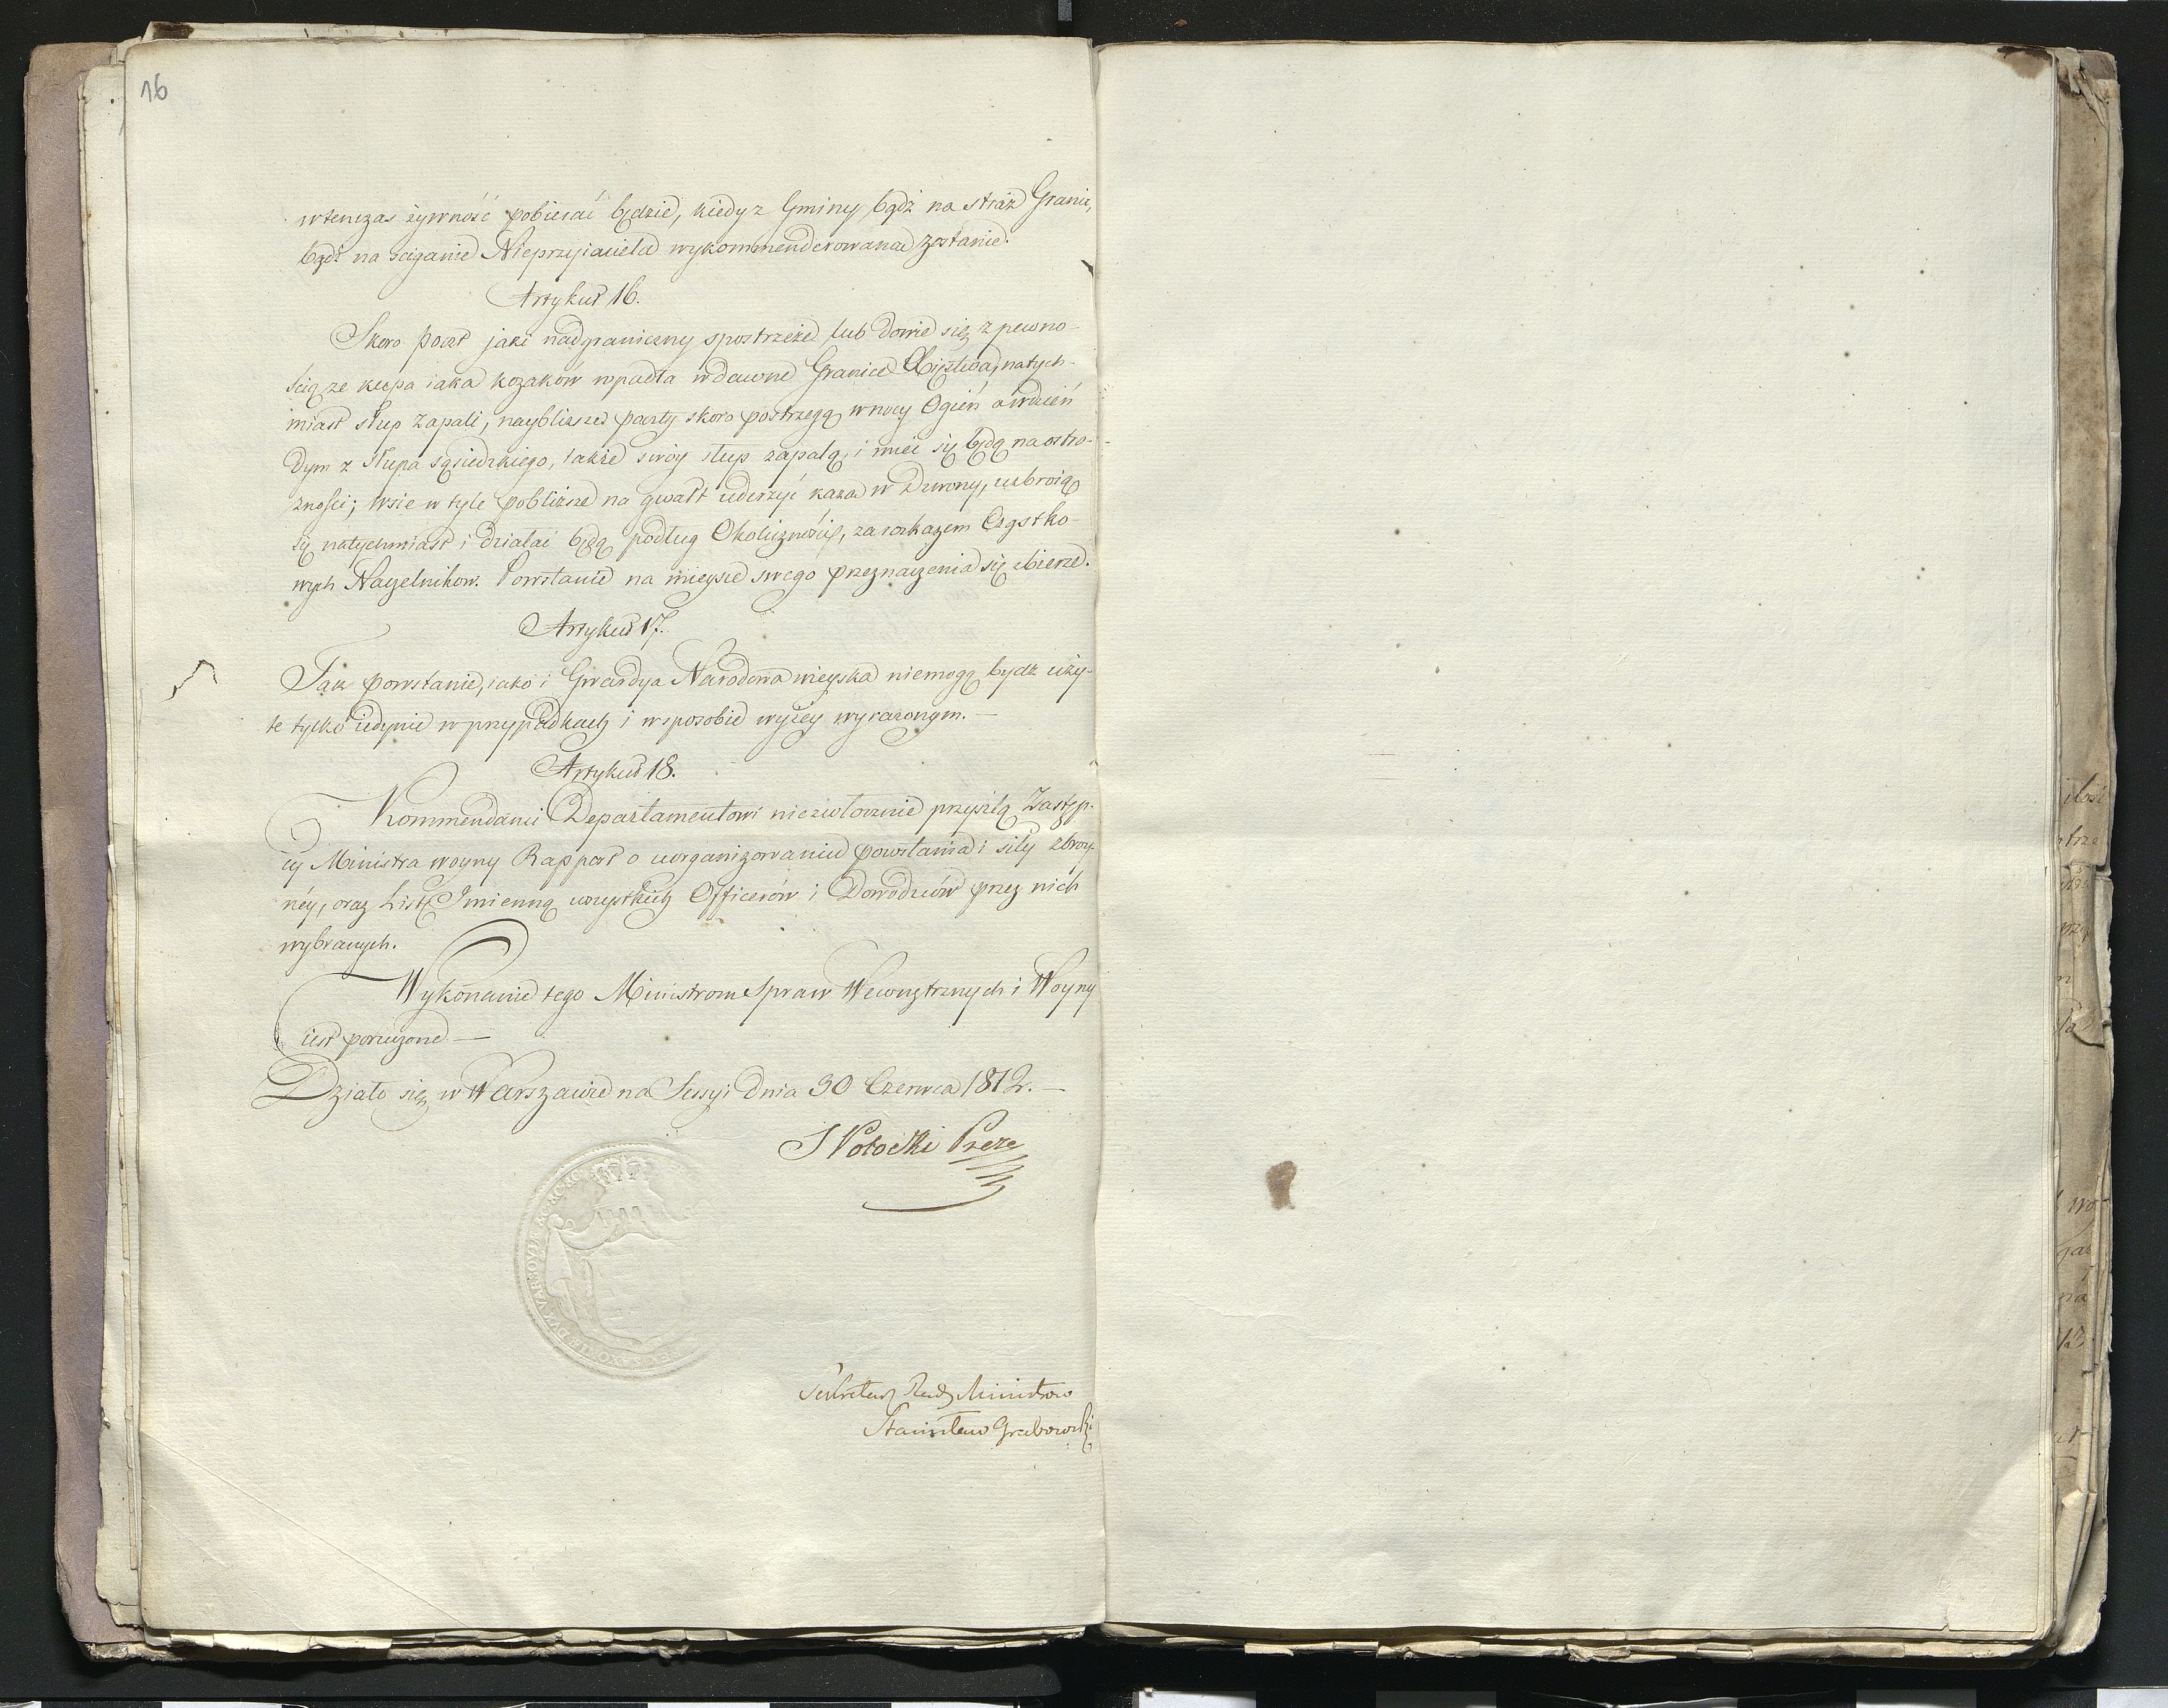 16
wtenczas żywność pobierać będzie, kiedy z Gminy bądź na straż Granic,
bądź na sciganie Nieprzyiaciela wykommenderowana zostanie.
Artykuł 16.
Skoro poczt jaki nadgraniczny spostrzeże lub dowie się z pewno-
ścią ze kupa iaka kozaków wpadła w dawne Granice Xięztwa, natych-
miast słup zapali, naybliższe poczty skoro postrzegą w nocy Ogień a w dzień
dym z słupa sąsiedzkiego, także swóy słup zapalą, i mieć się będą na ostro-
zności; wsie w tyle pobliższe na gwałt uderzyć każą w Dzwony, uzbroią
się natychmiast i działać będą podług Okoliczności, za rozkazem Cząstko-
wych Naczelników. Powstanie na mieysce swego przeznaczenia się zbierze.
Artykuł 17.
Tak powstanie, iako i Gwardya Narodowa wieyska niemogą bydź uży-
te tylko iedynie w przypadkach i w sposobie wyżey wyrażonym. —
Artykuł 18.
Kommendanci Departamentowi niezwłocznie przyszlą Zastęp-
cy Ministra woyny Rapport o uorganizowaniu powstania i siły zbroy-
néy, oraz Listę Imienną wszystkich Officerów i Dowodzców przez nich
wybranych.
Wykonanie tego Ministrom Spraw Wewnętrznych i Woyny
iest poruczone —
Działo się w Warszawie na Sessyi Dnia 30 Czerwca 1812. —
S Potocki Preze
Sekretarz Rady Ministrow
Stanisław Grabowski